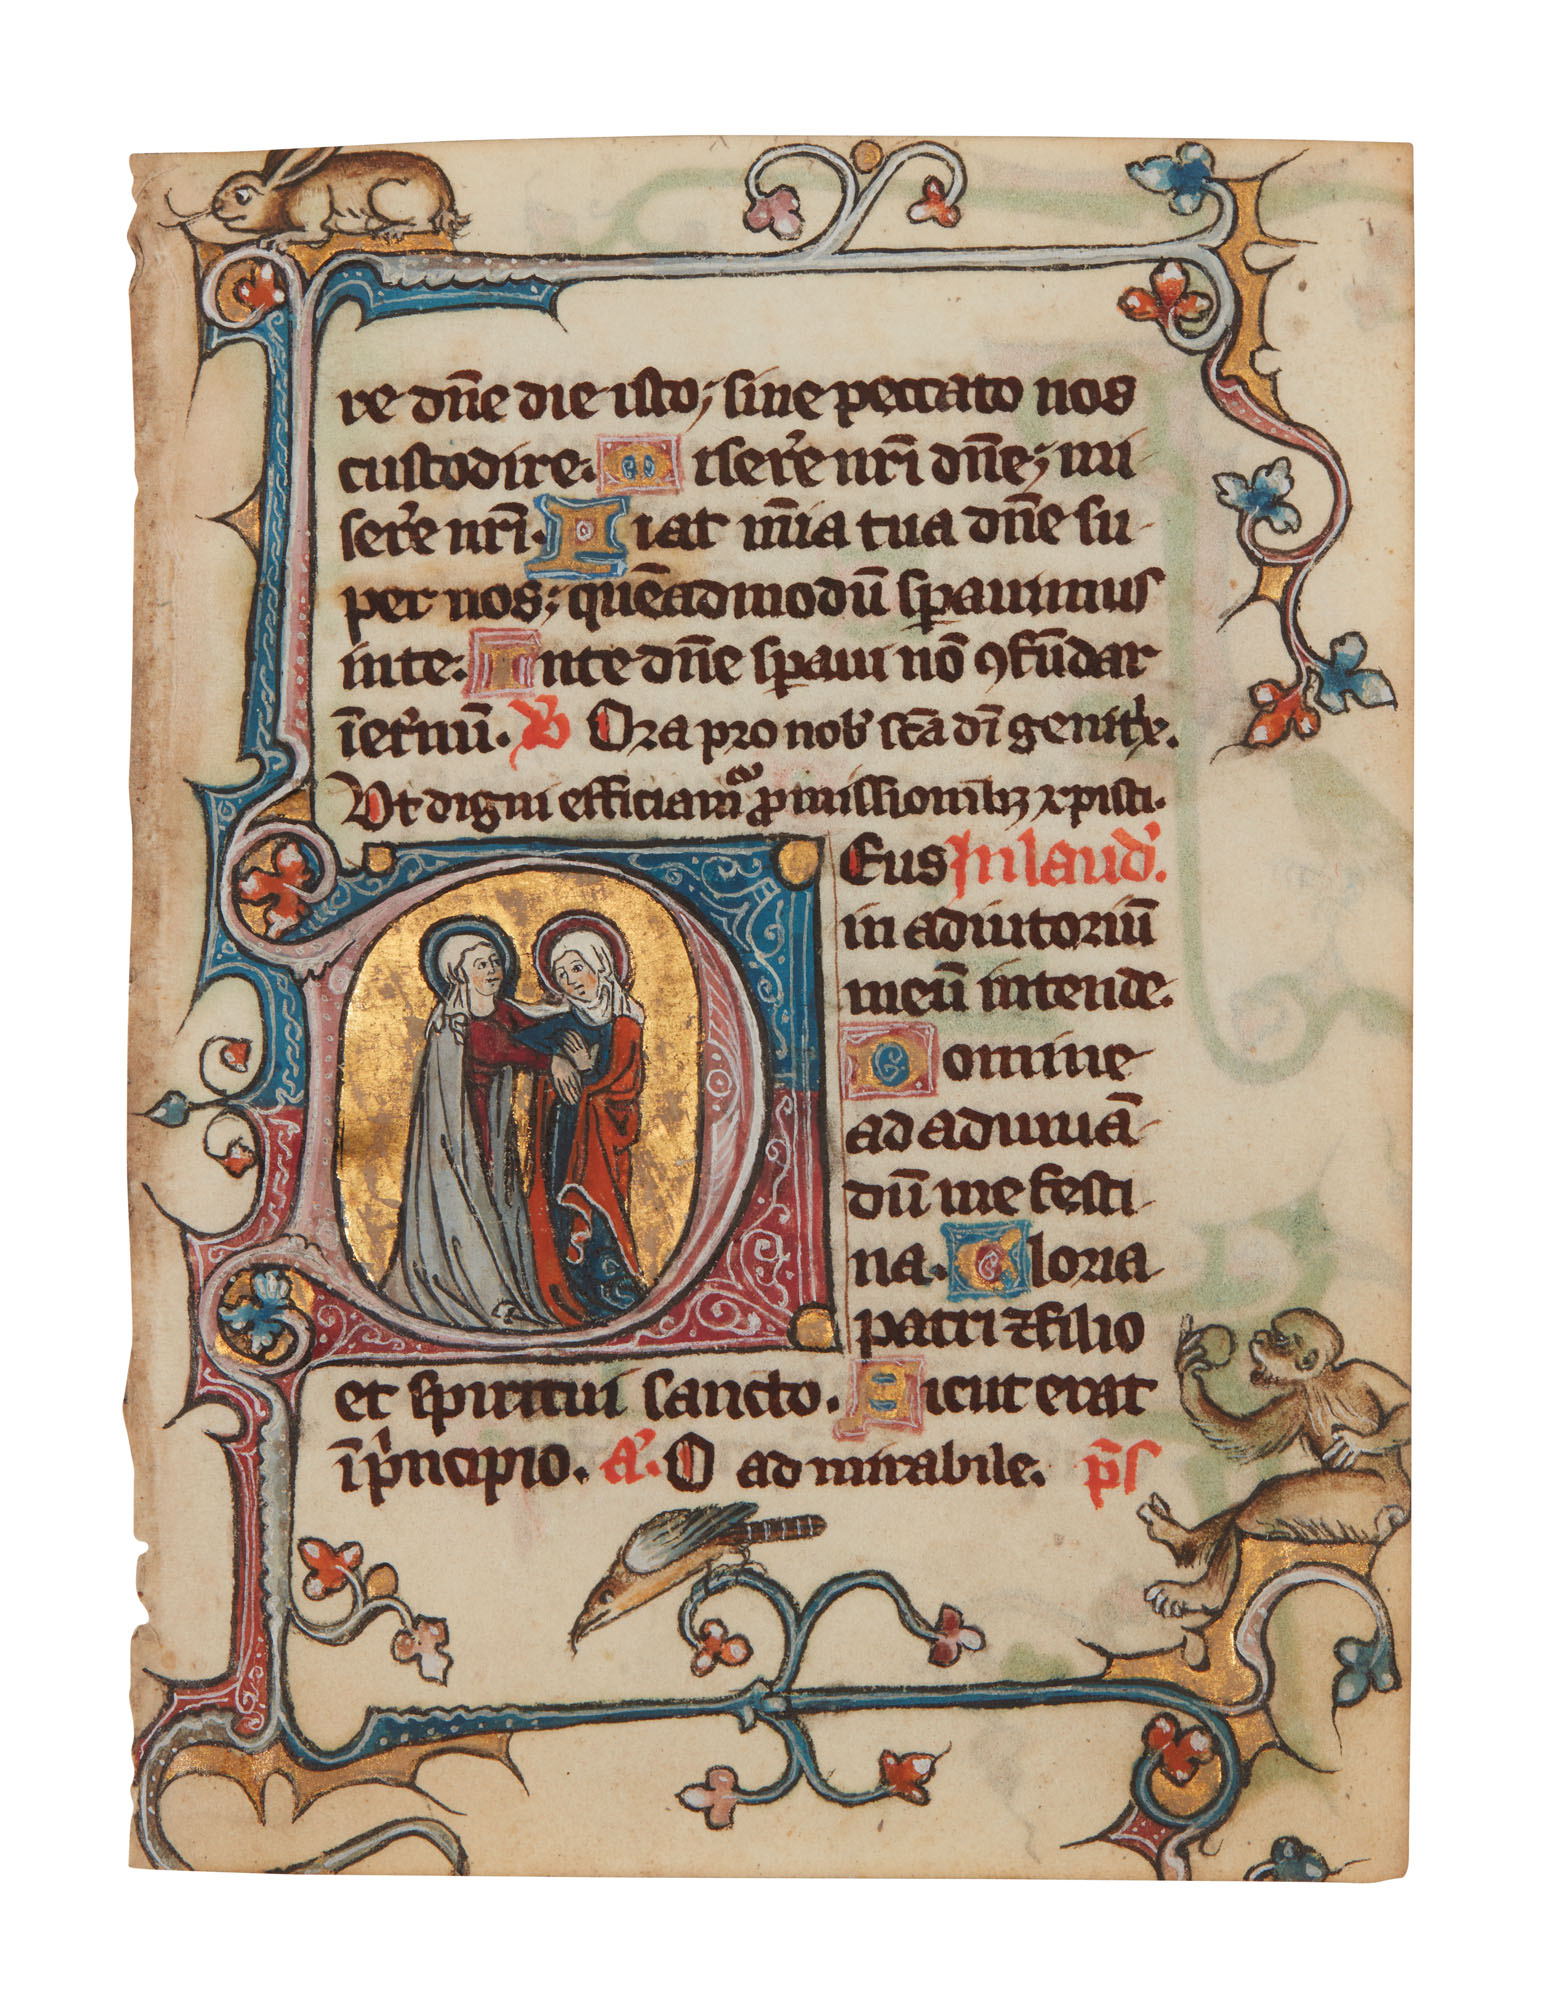 re dñe die isto; sine peccato nos
custodire. Miserẽ nrĩ dñe; mi
serẽ nrĩ. Fiat mĩa tua dñe su
per nos; quẽadmodũ sperauimus
inte. Inte dñe speraui nõ ꝯfũdar
ĩ eternũ. V̕ Ora pro nob̕ scã dĩ genitͥx.
Ut digni efficiamͬ ꝓmissionibꝫ xpisti.
Deus In laud̕.
in adiutoriũ
meũ intende.
Domine
ad adiuuã
dũ me festi
na. Gloria
patri ⁊ filio
et spiritui sancto. Sicut erat
ĩ pͥncipio. A̕. O admirabile. p̃s